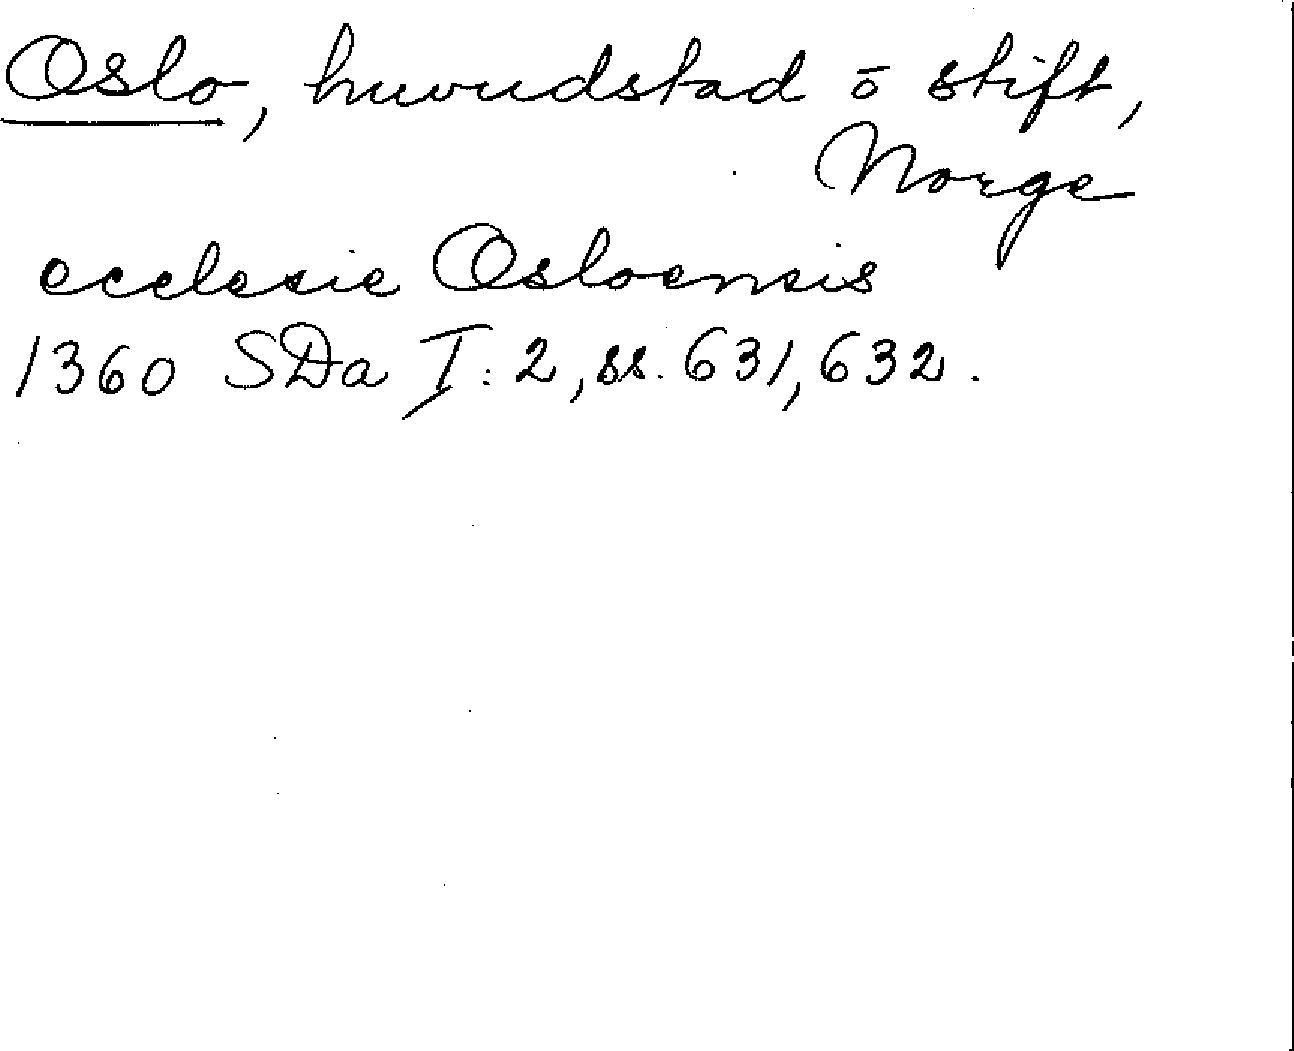 Oslo, huvudstad ō stift,
Norge
ecclesie Osloensis
1360 SDa I:2, ss. 631, 632.